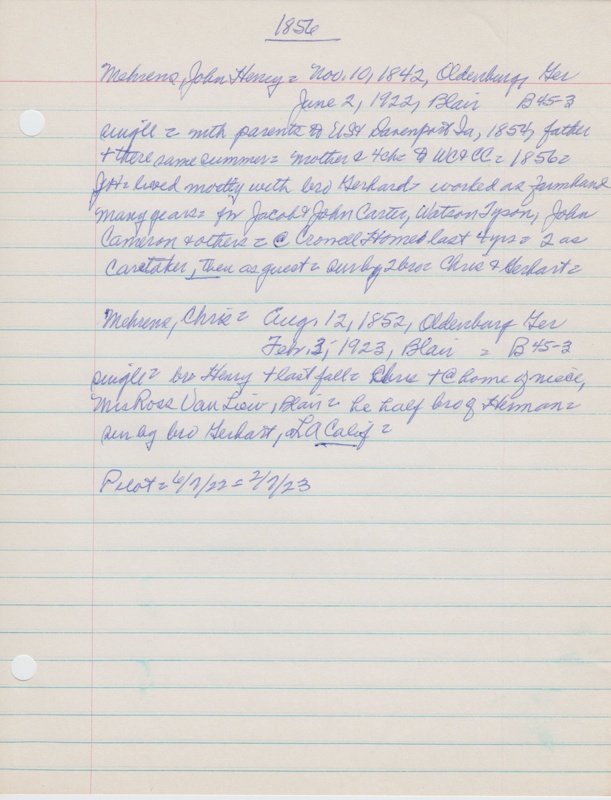 1856
Mehrens, John Henry = Nov. 10, 1842, Oldenburg, Ger
June 2, 1922, Blair B45-3
single = with parents to USA Davenport Ia, 1854, father
+ there same summer = mother & 4 ch to WC & CC = 1856 =
JH = lived mostly with bro Gerhard = worked as farmhand
many years = for Jacob & John Carter, Watson Tyson, John
Cameron & others = @ Crowell Home last 4 yrs = 2 as
caretaker, then as guest = sur by 2 bro = Chris & Gerhart =
Mehrens, Chris = Aug. 12, 1852, Oldenburg Ger
Feb. 3, 1923, Blair = B45-3
single = bro Henry + last fall = Chris + @ home of niece,
Mrs Ross Van Liew, Blair = he half bro of Herman =
sur by bro Gerhart, LA Calif =
Pilot = 6/7/22 = 2/7/23